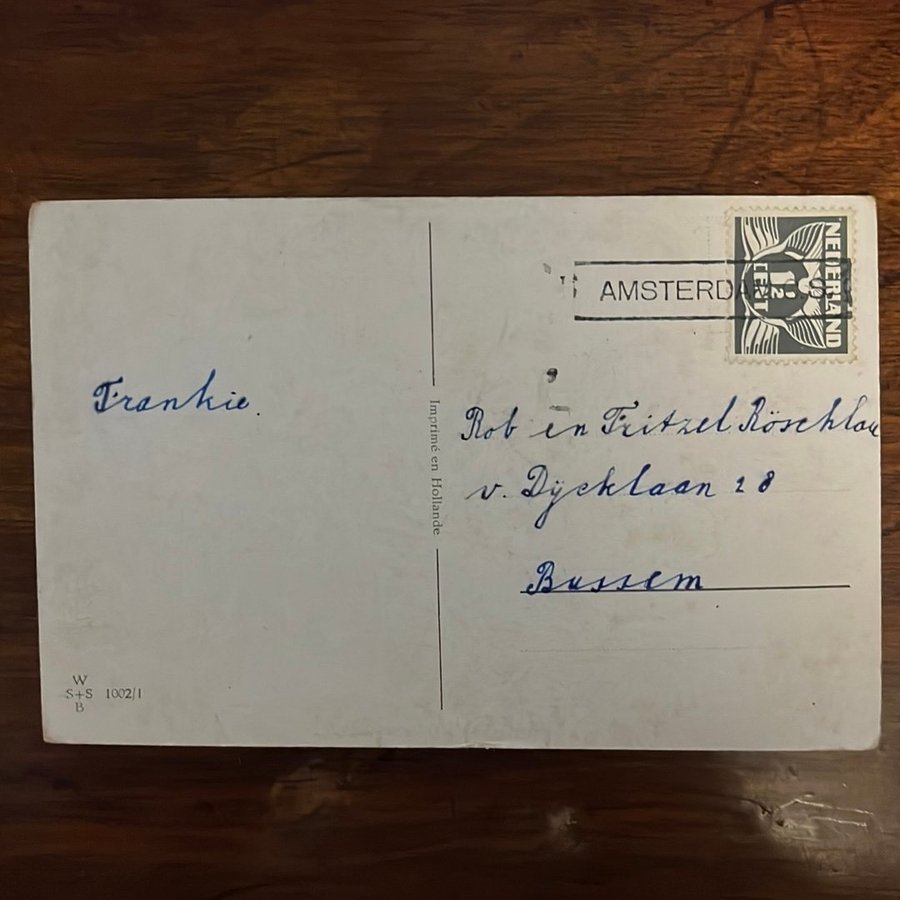 NEDERLAND
1½
CENT
AMSTERDAM C.S.
Frankie.
Rob en Fritzel Röschlau
v. Dÿcklaan 28
Bussem
Imprimé en Hollande
W
S+S 1002/1
B